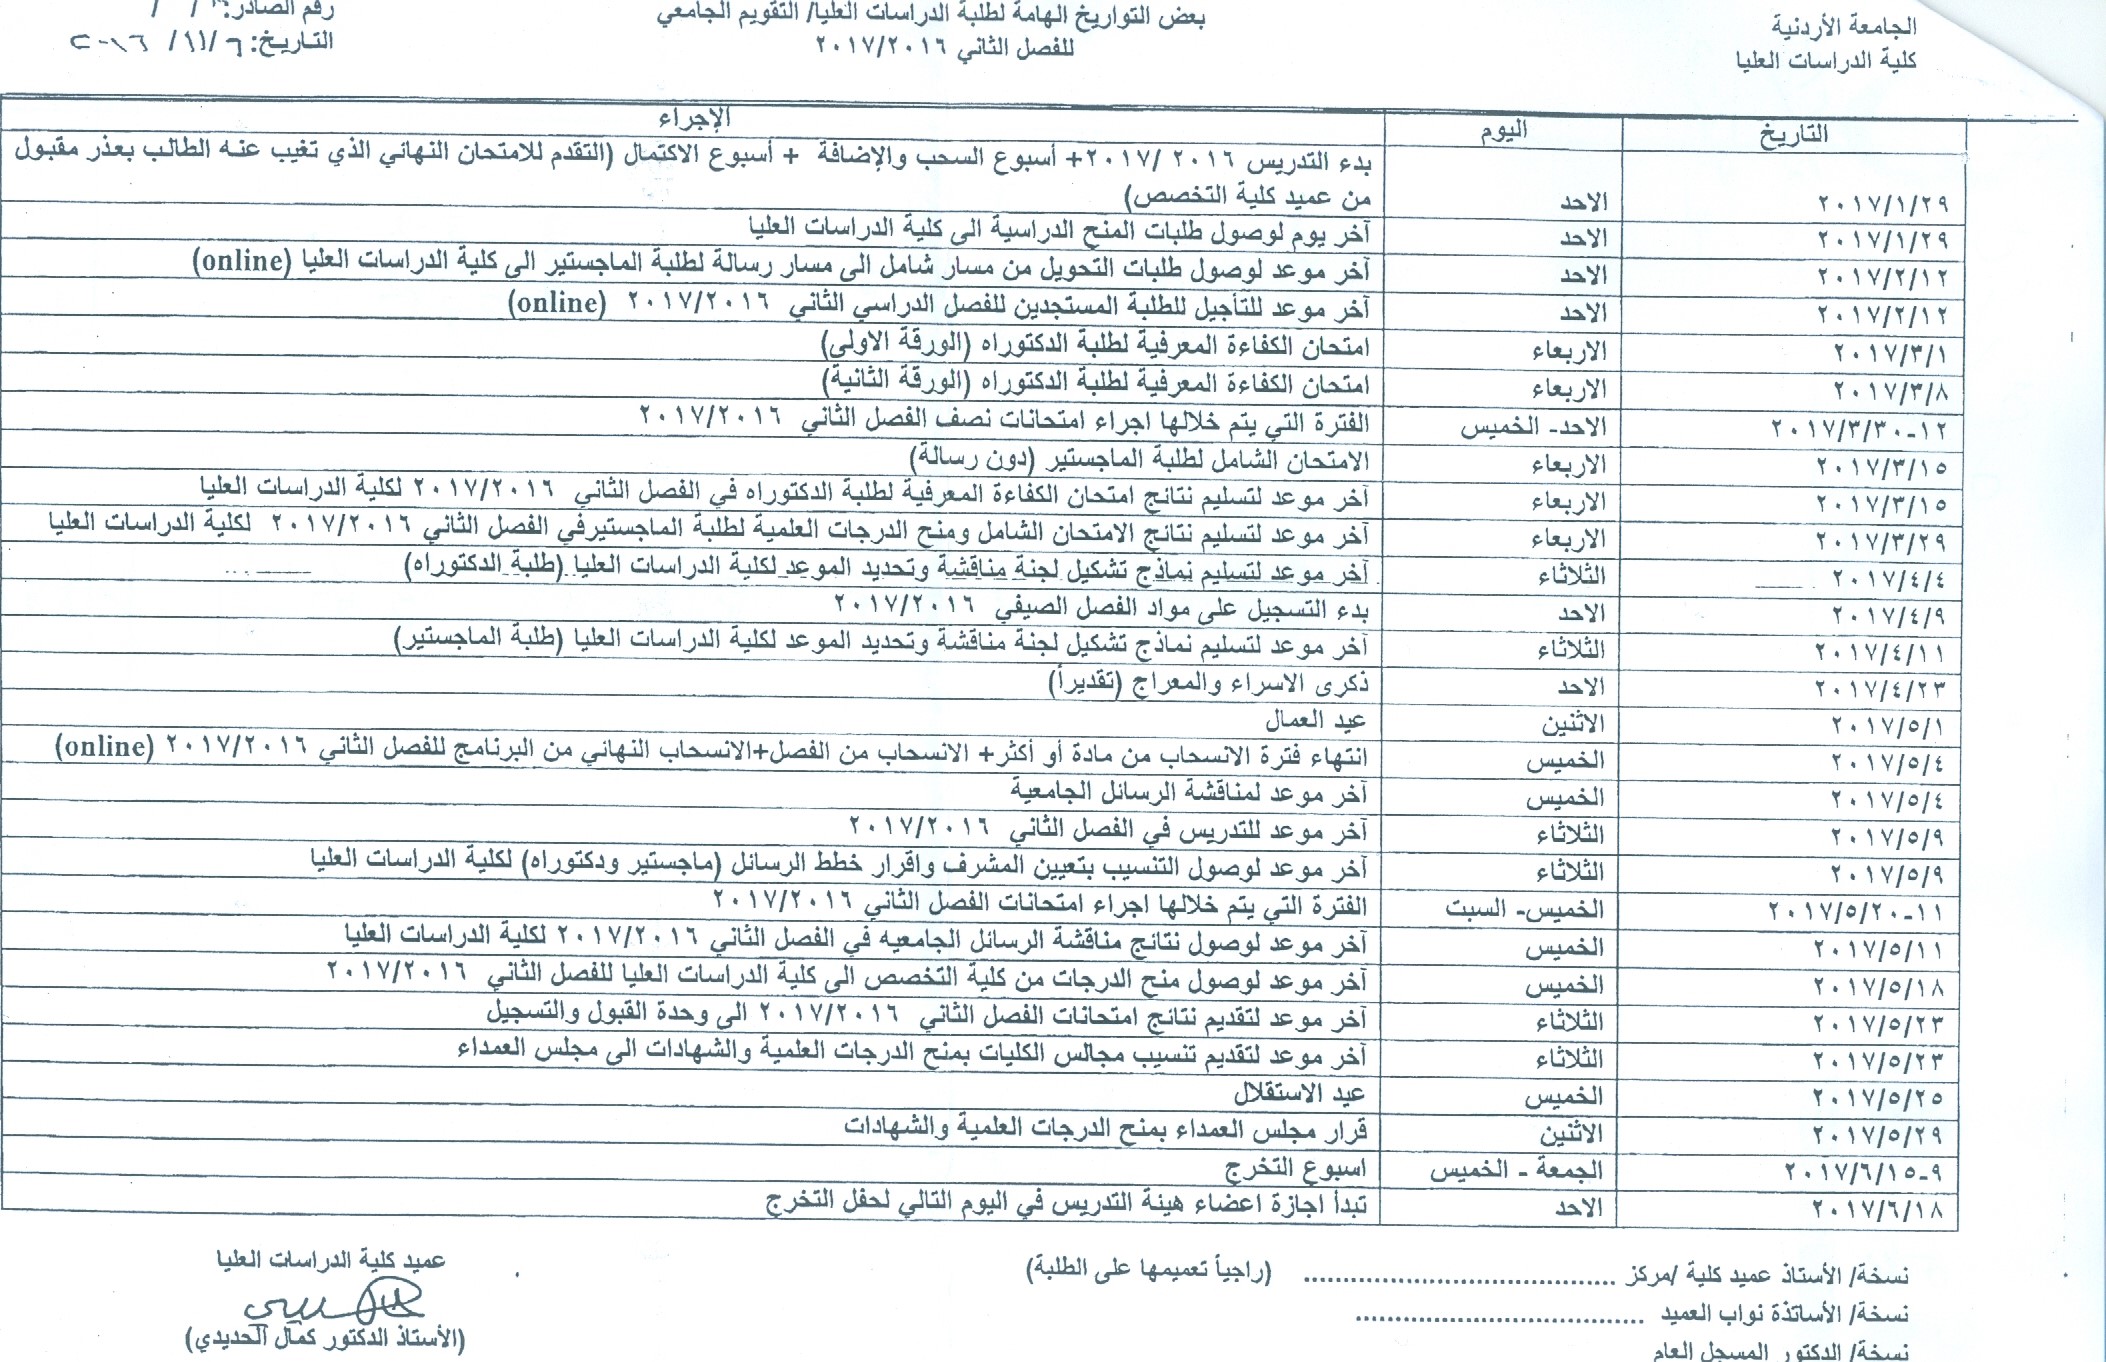 الجامعة الأردنية
كلية الدراسات العليا
بعض التواريخ الهامة لطلبة الدراسات العليا/ التقويم الجامعي
للفصل الثاني ٢٠١٧/٢٠١٦
رقم الصادر:
التاريخ: ٢٠١٦/١١/٦
التاريخ اليوم الإجراء
٢٠١٧/١/٢٩ الاحد بدء التدريس ٢٠١٦/ ٢٠١٧+ أسبوع السحب والإضافة + أسبوع الاكتمال (التقدم للامتحان النهائي الذي تغيب عنه الطالب بعذر مقبول
من عميد كلية التخصص)
٢٠١٧/١/٢٩ الاحد آخر يوم لوصول طلبات المنح الدراسية الى كلية الدراسات العليا
٢٠١٧/٢/١٢ الاحد آخر موعد لوصول طلبات التحويل من مسار شامل الى مسار رسالة لطلبة الماجستير الى كلية الدراسات العليا (online)
٢٠١٧/٢/١٢ الاحد آخر موعد للتأجيل للطلبة المستجدين للفصل الدراسي الثاني ٢٠١٧/٢٠١٦ (online)
٢٠١٧/٣/١ الاربعاء امتحان الكفاءة المعرفية لطلبة الدكتوراه (الورقة الاولى)
٢٠١٧/٣/٨ الاربعاء امتحان الكفاءة المعرفية لطلبة الدكتوراه (الورقة الثانية)
١٢-٢٠١٧/٣/٣٠ الاحد- الخميس الفترة التي يتم خلالها اجراء امتحانات نصف الفصل الثاني ٢٠١٧/٢٠١٦
٢٠١٧/٣/١٥ الاربعاء الامتحان الشامل لطلبة الماجستير (دون رسالة)
٢٠١٧/٣/١٥ الاربعاء آخر موعد لتسليم نتائج امتحان الكفاءة المعرفية لطلبة الدكتوراه في الفصل الثاني ٢٠١٧/٢٠١٦ لكلية الدراسات العليا
٢٠١٧/٣/٢٩ الاربعاء آخر موعد لتسليم نتائج الامتحان الشامل ومنح الدرجات العلمية لطلبة الماجستيرفي الفصل الثاني ٢٠١٧/٢٠١٦ لكلية الدراسات العليا
٢٠١٧/٤/٤ الثلاثاء آخر موعد لتسليم نماذج تشكيل لجنة مناقشة وتحديد الموعد لكلية الدراسات العليا (طلبة الدكتوراه)
٢٠١٧/٤/٩ الاحد بدء التسجيل على مواد الفصل الصيفي ٢٠١٧/٢٠١٦
٢٠١٧/٤/١١ الثلاثاء آخر موعد لتسليم نماذج تشكيل لجنة مناقشة وتحديد الموعد لكلية الدراسات العليا (طلبة الماجستير)
٢٠١٧/٤/٢٣ الاحد ذكرى الاسراء والمعراج (تقديراً)
٢٠١٧/٥/١ الاثنين عيد العمال
٢٠١٧/٥/٤ الخميس انتهاء فترة الانسحاب من مادة أو أكثر+ الانسحاب من الفصل+الانسحاب النهائي من البرنامج للفصل الثاني ٢٠١٧/٢٠١٦ (online)
٢٠١٧/٥/٤ الخميس آخر موعد لمناقشة الرسائل الجامعية
٢٠١٧/٥/٩ الثلاثاء آخر موعد للتدريس في الفصل الثاني ٢٠١٧/٢٠١٦
٢٠١٧/٥/٩ الثلاثاء آخر موعد لوصول التنسيب بتعيين المشرف واقرار خطط الرسائل (ماجستير ودكتوراه) لكلية الدراسات العليا
١١-٢٠١٧/٥/٢٠ الخميس- السبت الفترة التي يتم خلالها اجراء امتحانات الفصل الثاني ٢٠١٧/٢٠١٦
٢٠١٧/٥/١١ الخميس آخر موعد لوصول نتائج مناقشة الرسائل الجامعيه في الفصل الثاني ٢٠١٧/٢٠١٦ لكلية الدراسات العليا
٢٠١٧/٥/١٨ الخميس آخر موعد لوصول منح الدرجات من كلية التخصص الى كلية الدراسات العليا للفصل الثاني ٢٠١٧/٢٠١٦
٢٠١٧/٥/٢٣ الثلاثاء آخر موعد لتقديم نتائج امتحانات الفصل الثاني ٢٠١٧/٢٠١٦ الى وحدة القبول والتسجيل
٢٠١٧/٥/٢٣ الثلاثاء آخر موعد لتقديم تنسيب مجالس الكليات بمنح الدرجات العلمية والشهادات الى مجلس العمداء
٢٠١٧/٥/٢٥ الخميس عيد الاستقلال
٢٠١٧/٥/٢٩ الاثنين قرار مجلس العمداء بمنح الدرجات العلمية والشهادات
٩-٢٠١٧/٦/١٥ الجمعة - الخميس اسبوع التخرج
٢٠١٧/٦/١٨ الاحد تبدأ اجازة اعضاء هيئة التدريس في اليوم التالي لحفل التخرج
نسخة/ الأستاذ عميد كلية /مركز ........................................ (راجياً تعميمها على الطلبة)
نسخة/ الأساتذة نواب العميد ........................................
نسخة/ الدكتور المسجل العام
عميد كلية الدراسات العليا
(الأستاذ الدكتور كمال الحديدي)